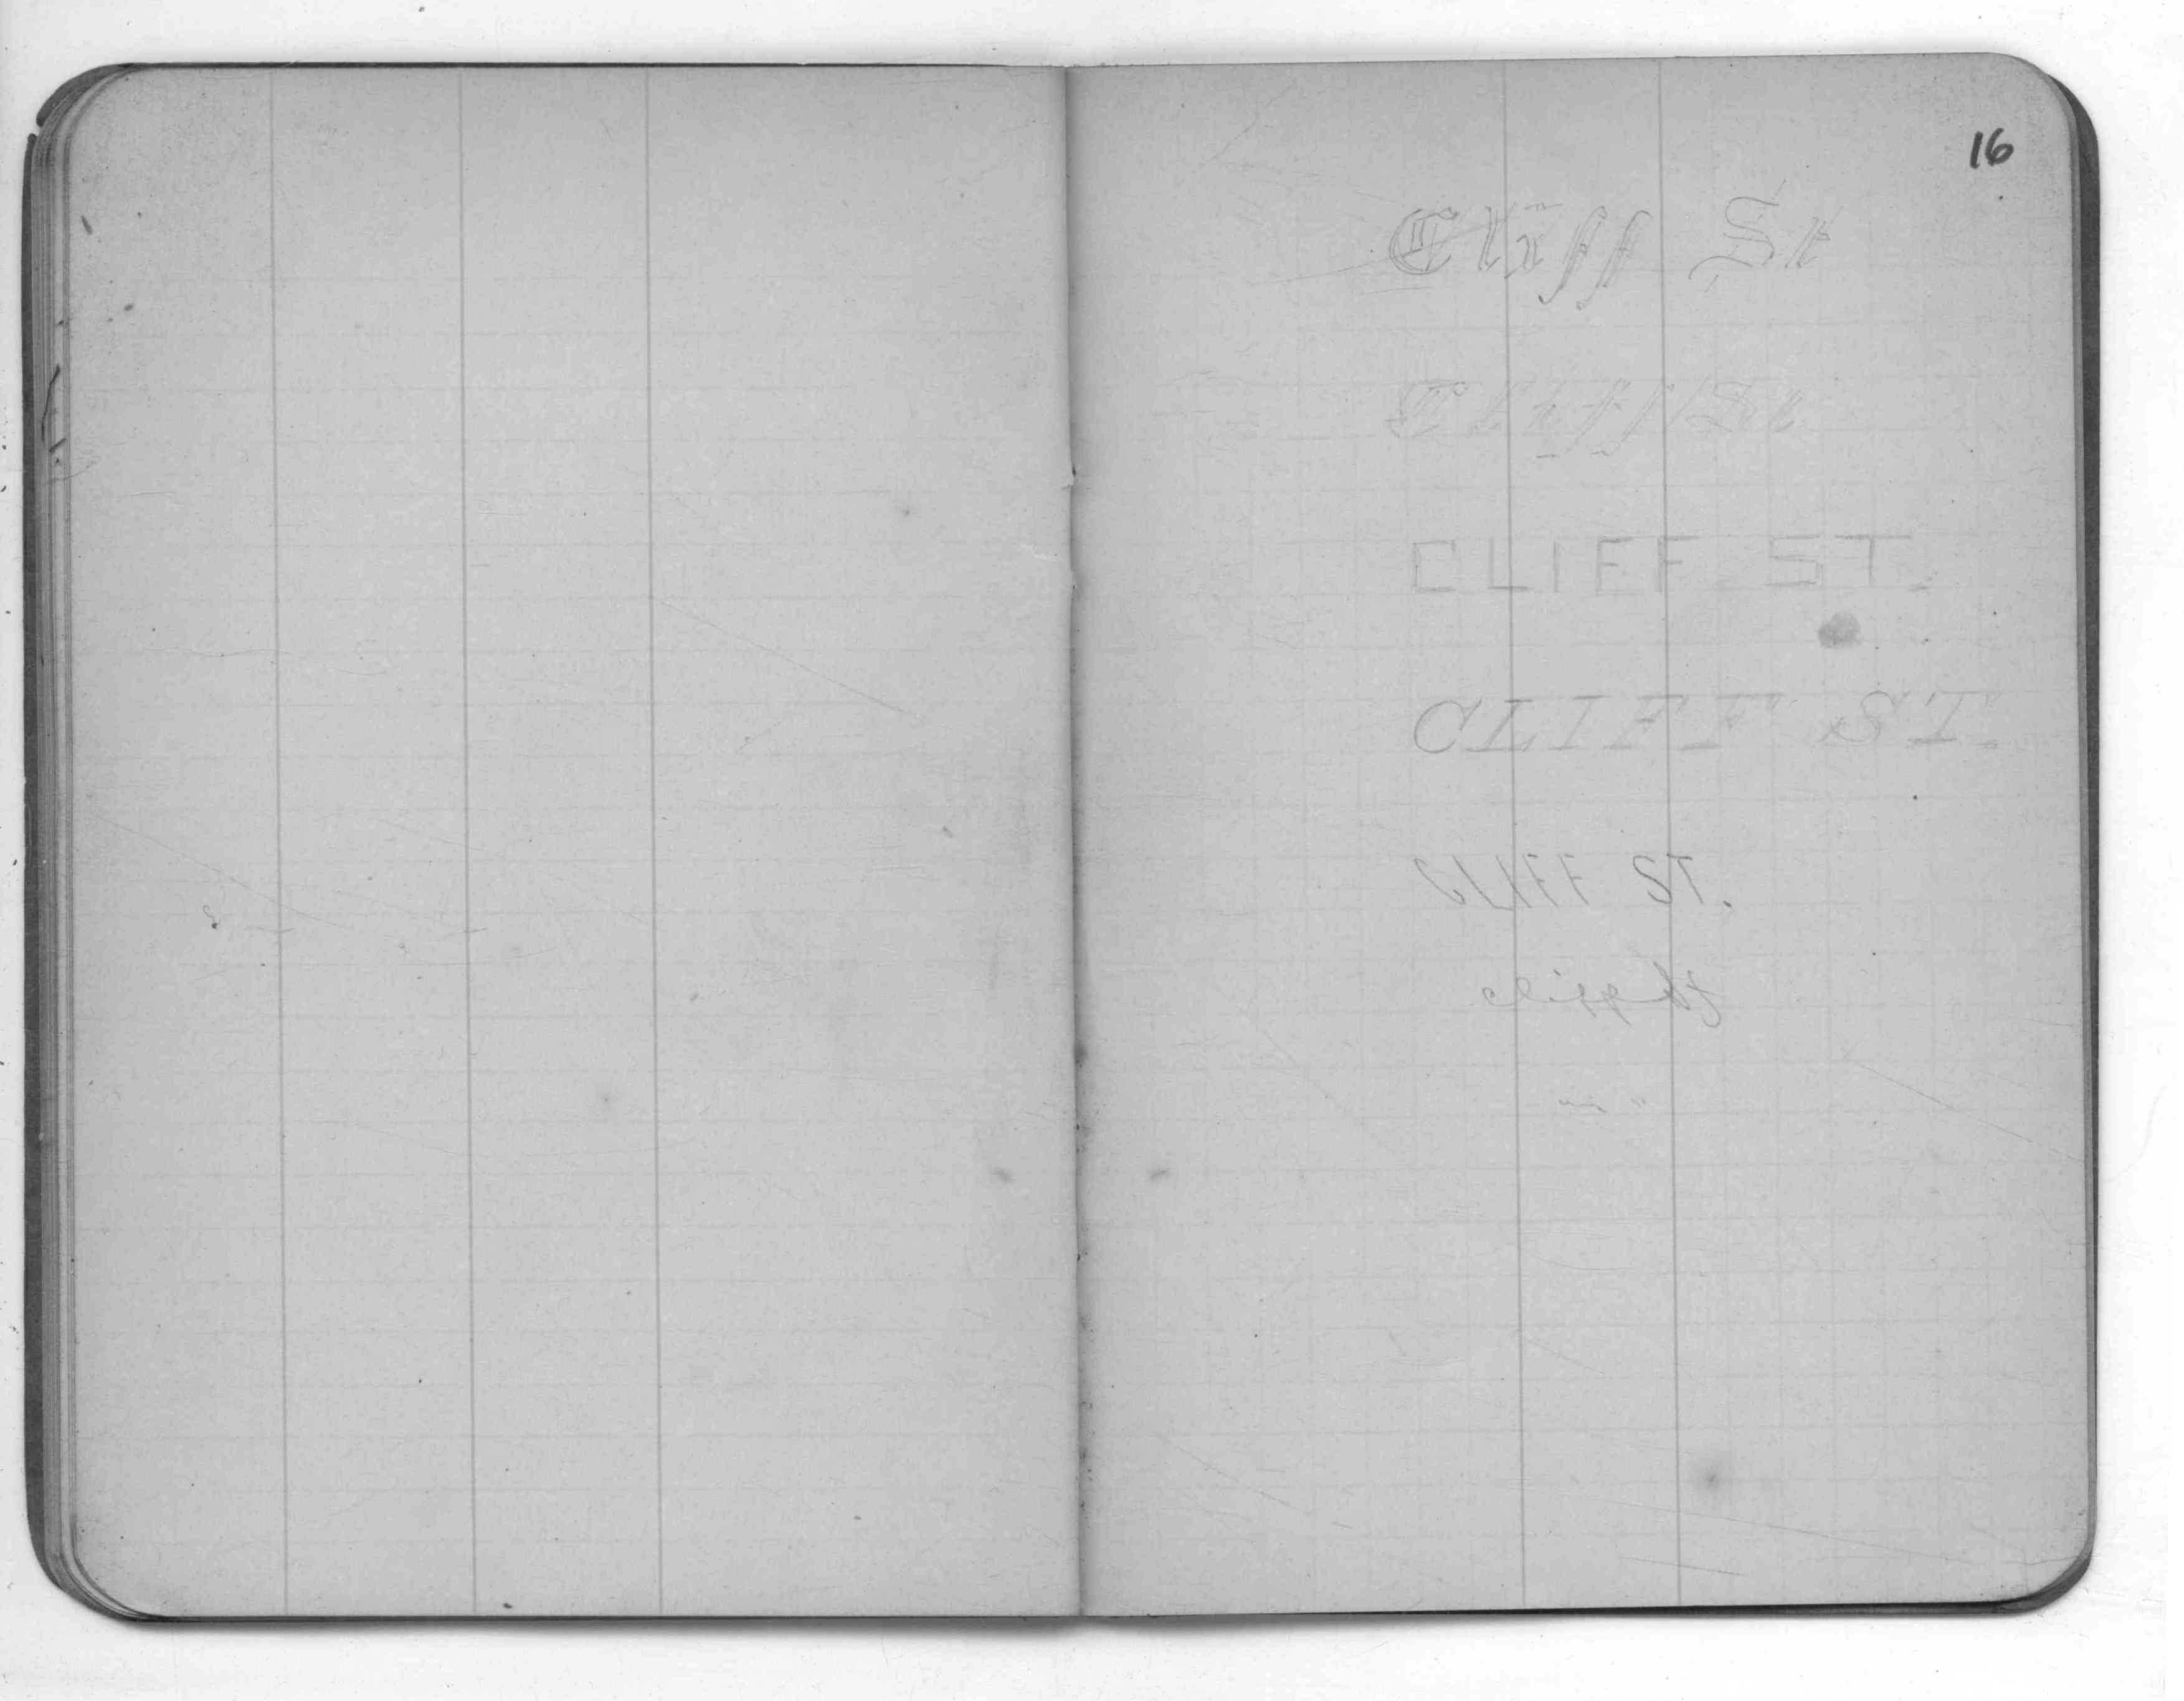 16
Cliff St
Cliff St
CLIFF ST.
CLIFF ST.
CLIFF ST.
cliff st